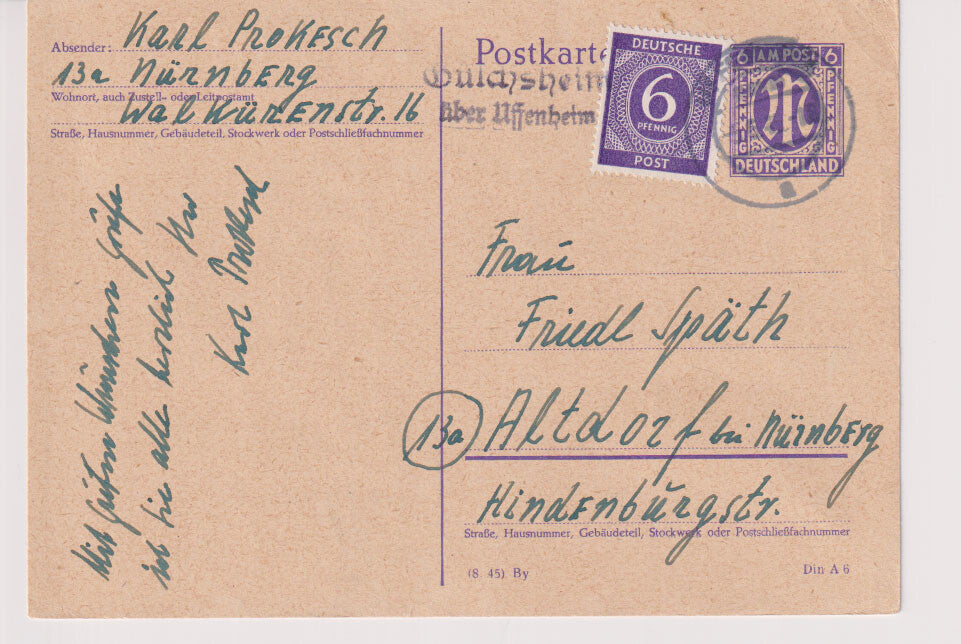 Absender: Karl Prokesch
13a Nürnberg
Wohnort, auch Zustell- oder Leitpostamt
Walkürenstr. 16
Straße, Hausnummer, Gebäudeteil, Stockwerk oder Postschließfachnummer
Mit guten Wünschen Grüße
ich Sie alle herzlich Ihr
Karl Prokesch
Postkarte
Gülchsheim
über Uffenheim
DEUTSCHE
6
PFENNIG
POST
6 AM POST 6
PFENNIG M PFENNIG
DEUTSCHLAND
a
Frau
Friedl Späth
13a Altdorf bei Nürnberg
Hindenburgstr.
Straße, Hausnummer, Gebäudeteil, Stockwerk oder Postschließfachnummer
(8. 45) By
Din A 6